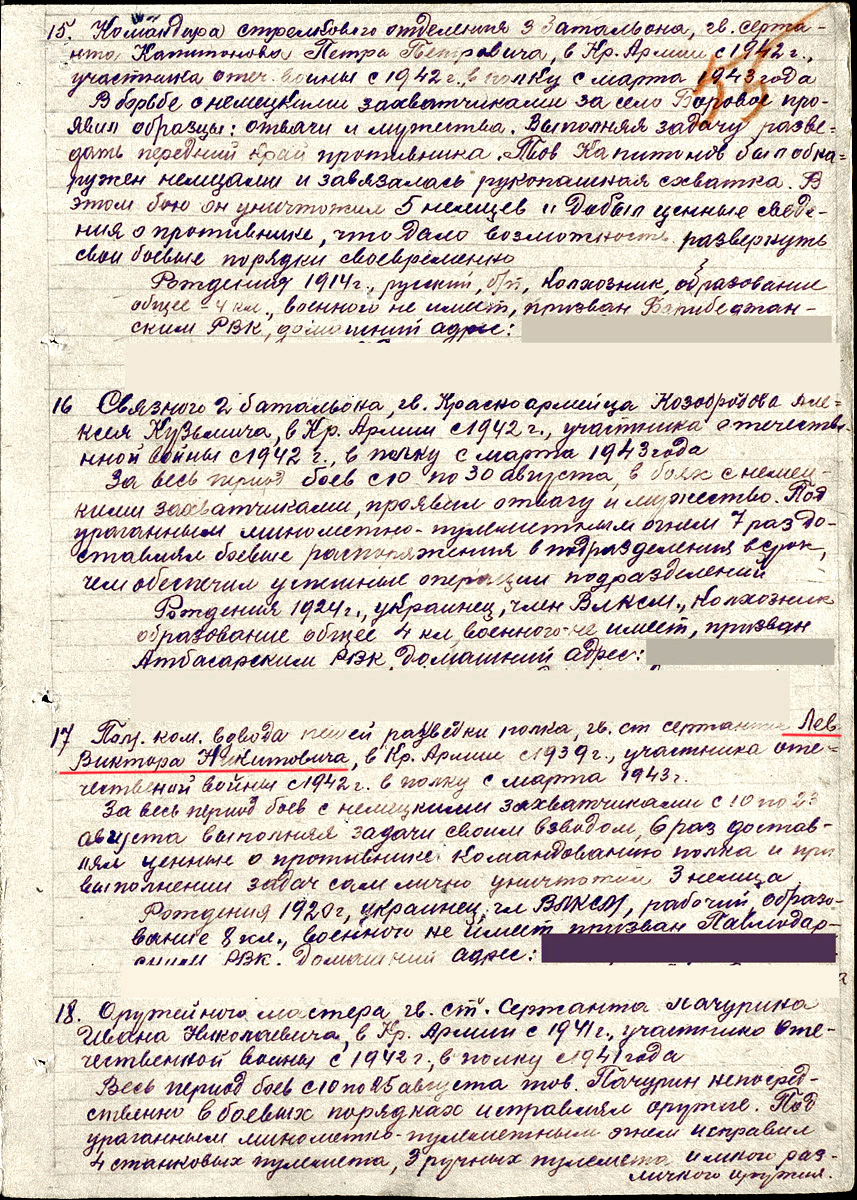 15. Командира стрелкового отделения 3 батальона, гв. сержа-
нта Капитонова Петра Петровича, в Кр. Армии с 1942 г.,
участника отеч. войны с 1942 г., в полку с марта 1943 года
53
В борьбе с немецкими захватчиками за село Боровое про-
явил образцы: отваги и мужества. Выполняя задачу разве-
дать передний край противника. Тов Капитонов был обна-
ружен немцами и завязалась рукопашная схватка. В
этом бою он уничтожил 5 немцев и добыл ценные сведе-
ния о противнике, что дало возможность развернуть
свои боевые порядки своевременно
Рождения 1914 г., русский, б/п, колхозник, образование
общее - 4 кл., военного не имеет, призван
ским РВК, домашний адрес:
16 Связного 2 батальона, гв. Красноармейца Козобродова Але-
ксея Кузьмича, в Кр. Армии с 1942 г., участника отечестве-
нной войны с 1942 г., в полку с марта 1943 года
За весь период боев с 10 по 30 августа, в боях с немец-
кими захватчиками, проявил отвагу и мужество. Под
ураганным минометно-пулеметным огнем 7 раз до-
ставлял боевые распоряжения в подразделения в срок,
чем обеспечил успешные операции подразделений
Рождения 1924 г., украинец, член ВЛКСМ., колхозник
образование общее 4 кл, военного не имеет, призван
Атбасарским РВК. Домашний адрес:
17 Пом. ком. взвода пешей разведки полка, гв. ст сержанта Лев
Виктора Никитовича, в Кр. Армии с 1939 г., участника оте-
чественой войны с 1942 г. в полку с марта 1943 г.
За весь период боев с немецкими захватчиками с 10 по 23
августа выполняя задачи своим взводом, 6 раз достав-
лял ценные о противнике командованию полка и при
выполнении задач сам лично уничтожил 3 немца
Рождения 1920 г, украинец, чл ВЛКСМ, рабочий, образо-
вание 8 кл., военного не имеет призван Павлодар-
ским РВК. Домашний адрес:
18. Оружейного мастера гв. ст. Сержанта Пачурина
Ивана Николаевича, в Кр. Армии с 1941 г., участника оте-
чественной войны с 1942 г., в полку с 1941 года
Весь период боев с 10 по 25 августа тов. Пачурин непосред-
ственно в боевых порядках исправлял оружие. Под
ураганным минометно-пулеметным огнем исправил
4 станковых пулемета, 3 ручных пулемета и много раз-
личного оружия.